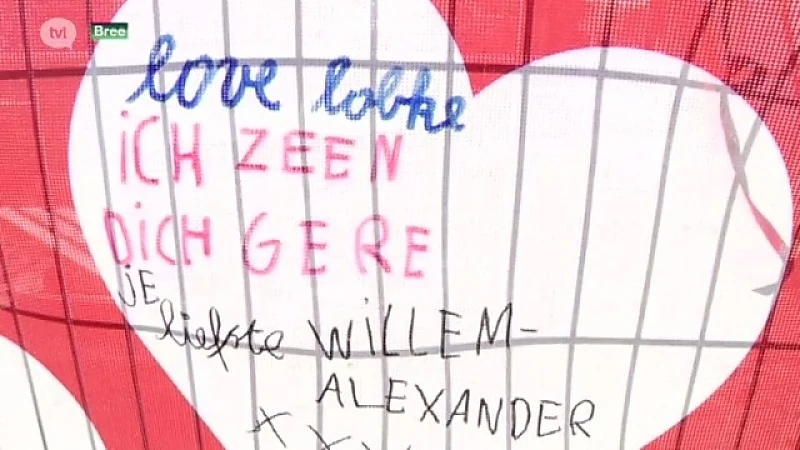 tvl
Bree
love lobke
iCH ZEEN
DiCH GERE
jE
liefste WiLLEM-
ALEXANDER
XXX